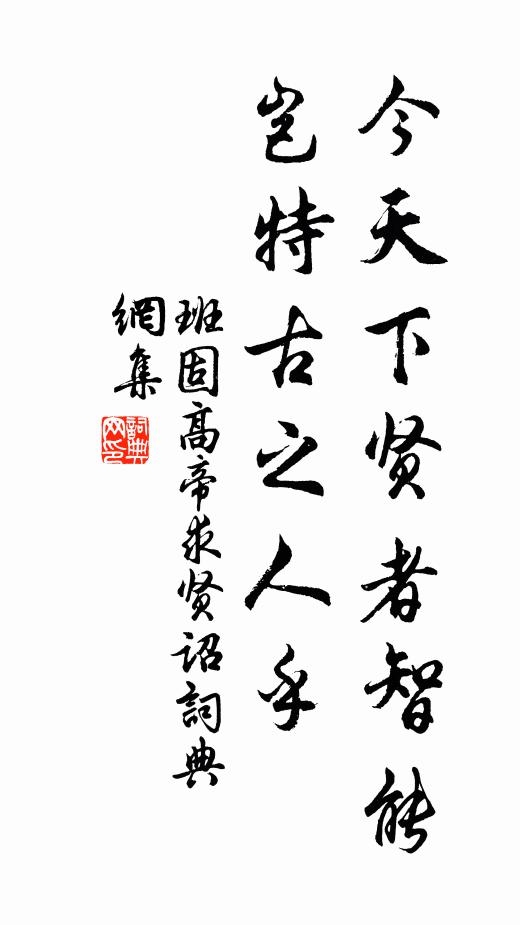 今天下贤者智能
岂特古之人乎
班固高帝求贤诏詞典
網集
詞典
网印